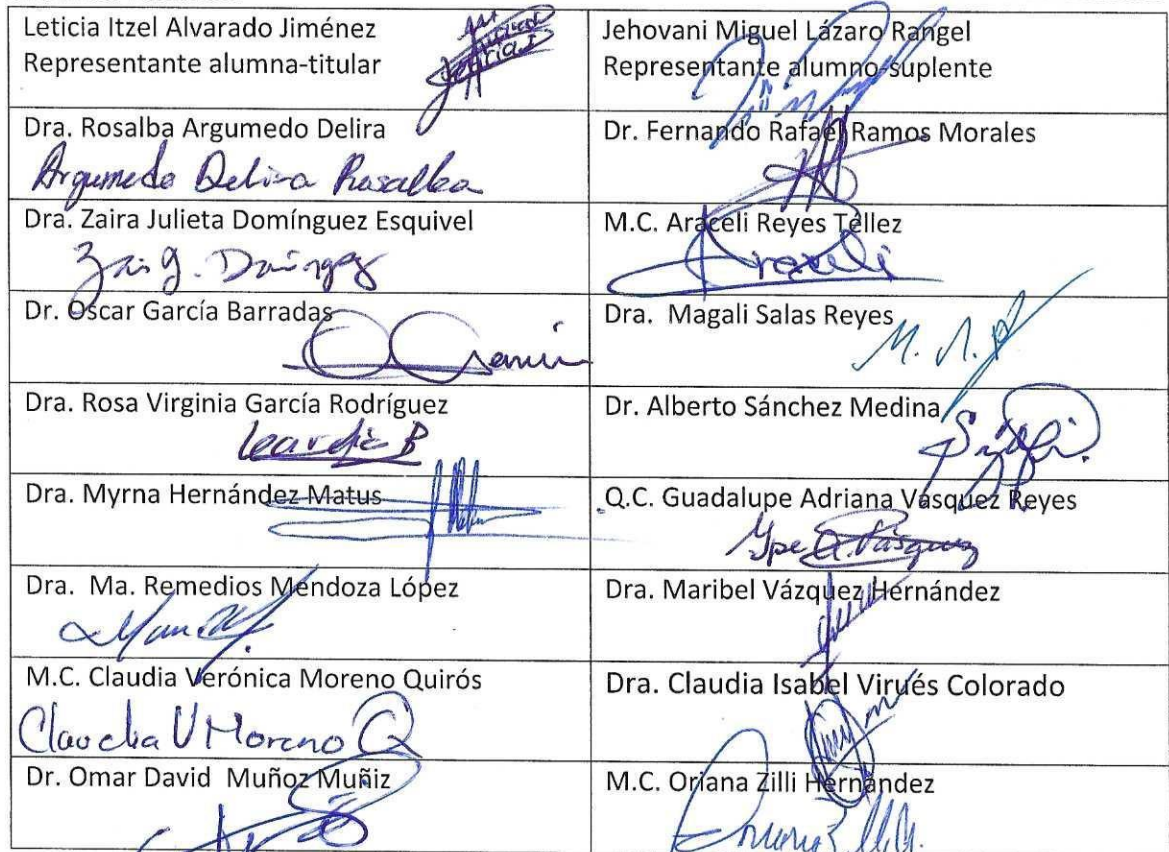 Leticia Itzel Alvarado Jiménez
Representante alumna-titular
Jehovani Miguel Lázaro Rangel
Representante alumno-suplente
Dra. Rosalba Argumedo Delira
Argumedo Delira Rosalba
Dr. Fernando Rafael Ramos Morales
Dra. Zaira Julieta Domínguez Esquivel
Zai J. Domínguez
M.C. Araceli Reyes Téllez
Araceli
Dr. Oscar García Barradas
Dra. Magali Salas Reyes
Dra. Rosa Virginia García Rodríguez
Dr. Alberto Sánchez Medina
Dra. Myrna Hernández Matus
Q.C. Guadalupe Adriana Vásquez Reyes
Gpe A. Vásquez
Dra. Ma. Remedios Mendoza López
Dra. Maribel Vázquez Hernández
M.C. Claudia Verónica Moreno Quirós
Claudia V Moreno Q
Dra. Claudia Isabel Virués Colorado
Dr. Omar David Muñoz Muñiz
M.C. Oriana Zilli Hernández